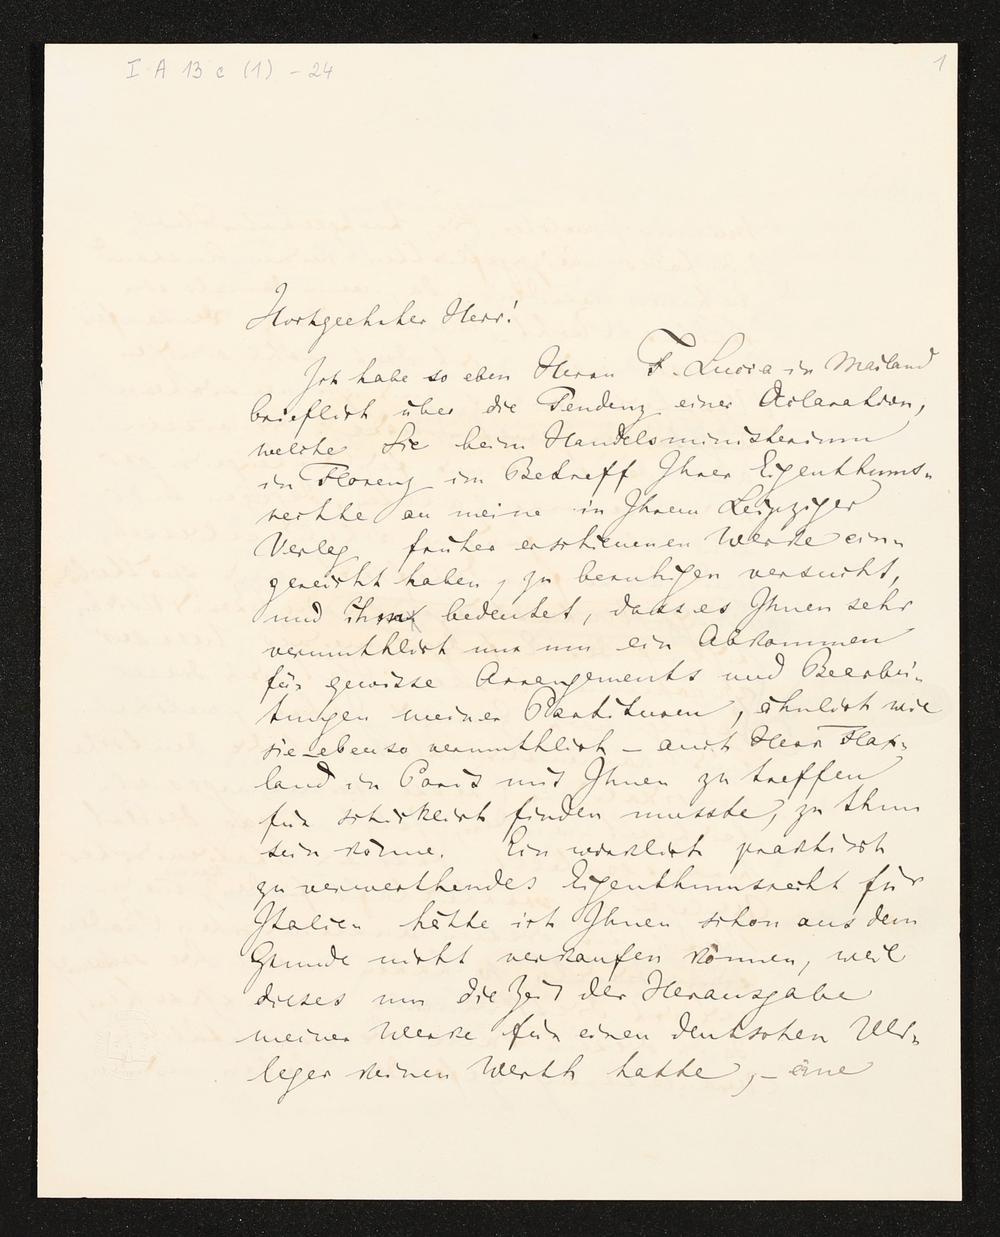 I A 13 c (1) - 24
1
Hochgeehrter Herr!
Ich habe so eben Herrn F. Lucca in Mailand
brieflich über die Tendenz einer Declaration,
welche Sie beim Handelsministerium
in Florenz im Betreff Ihrer Eigenthums-
rechte an meine in Ihrem Leipziger
Verlag früher erschienenen Werke ein-
gereicht haben, zu beruhigen versucht,
und ihm bedeutet, dass es Ihnen sehr
vermuthlich nur um ein Abkommen
für gewisse Arrangements und Bearbei-
tungen meiner Partituren, ähnlich wie
sie - ebenso vermuthlich - auch Herr Flax-
land in Paris mit Ihnen zu treffen
für schicklich finden musste, zu thun
sein könne. Ein wirklich praktisch
zu verwerthendes Eigenthumsrecht für
Italien hätte ich Ihnen schon aus dem
Grunde nicht verkaufen können, weil
dieses um die Zeit der Herausgabe
meiner Werke für einen deutschen Ver-
leger keinen Werth hatte, - eine